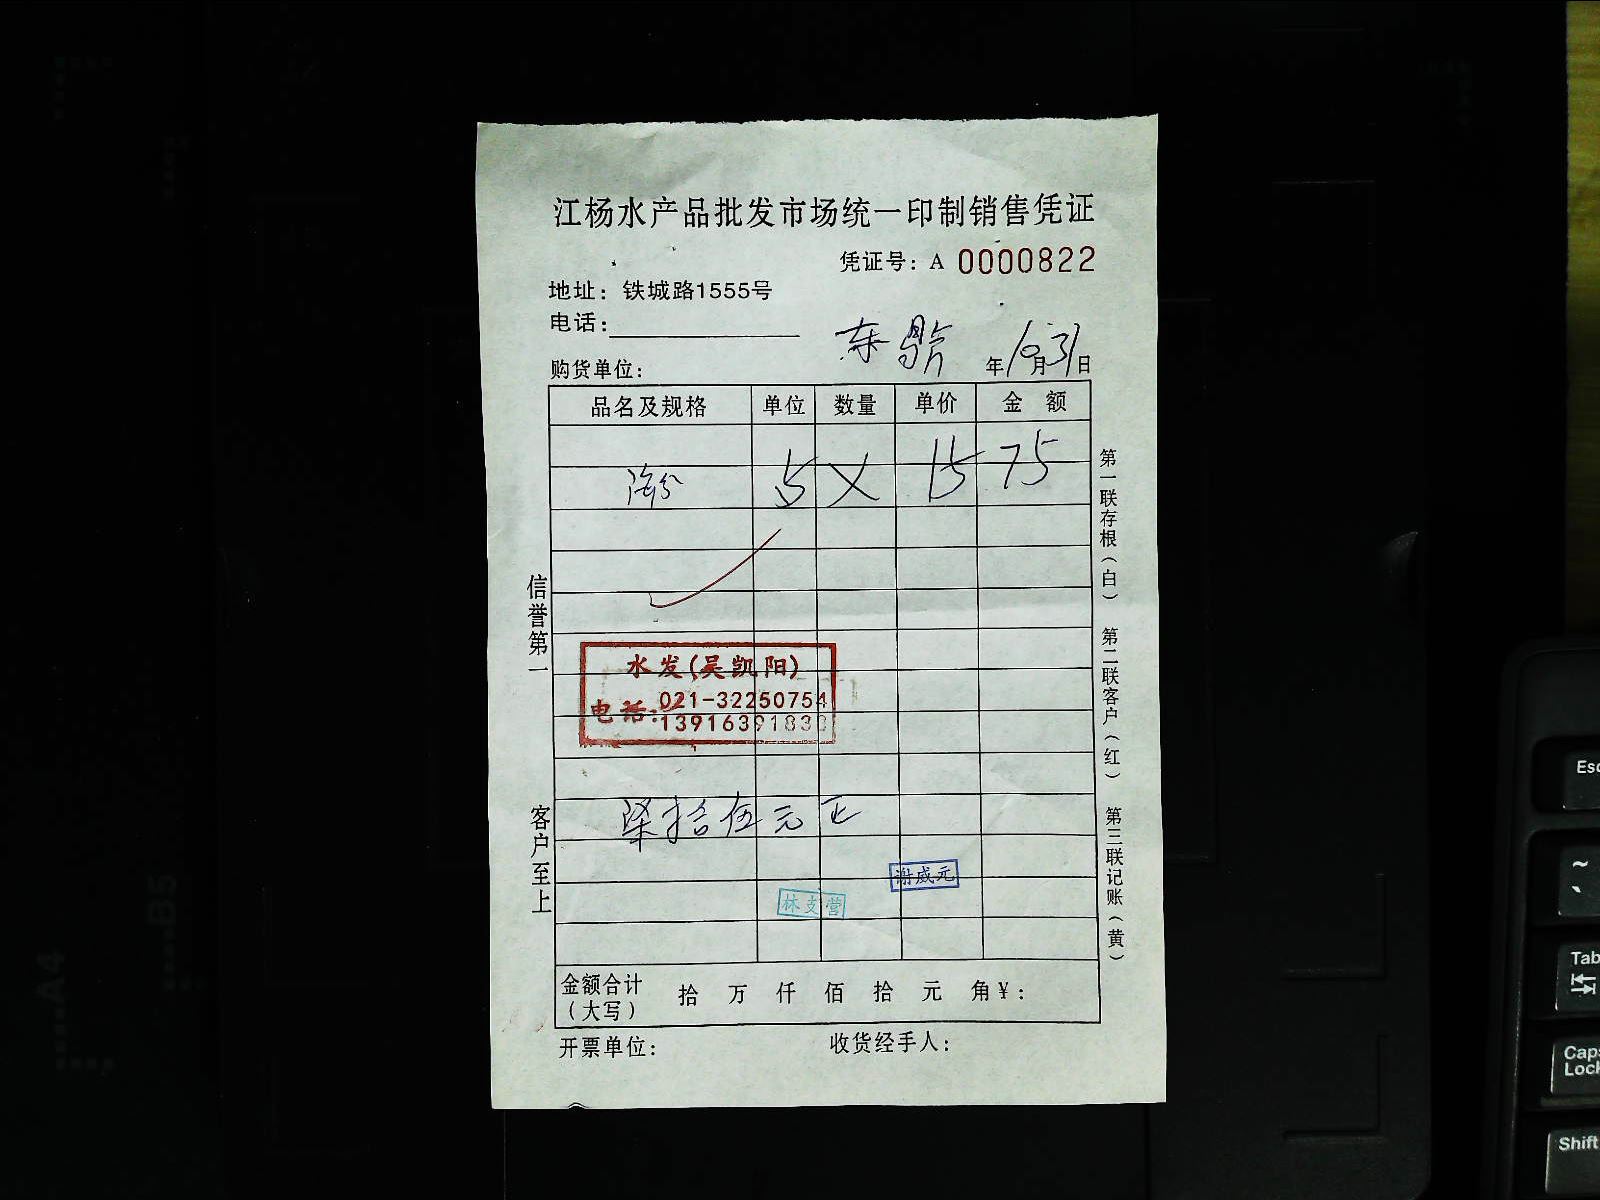 江杨水产品批发市场统一印制销售凭证
凭证号：A 0000822
地址：铁城路1555号
电话：
年10月31日
购货单位：
品名及规格 单位 数量 单价 金 额
5 × 15 75
水发(吴凯阳)
电话：021-32250754
1391639183
柒拾伍元正
谢威元
林支营
金额合计（大写） 拾 万 仟 佰 拾 元 角￥：
开票单位： 收货经手人：
信誉第一
客户至上
第一联存根（白）
第二联客户（红）
第三联记账（黄）
Esc
~
`
Tab
Caps Lock
Shift
A4
B5